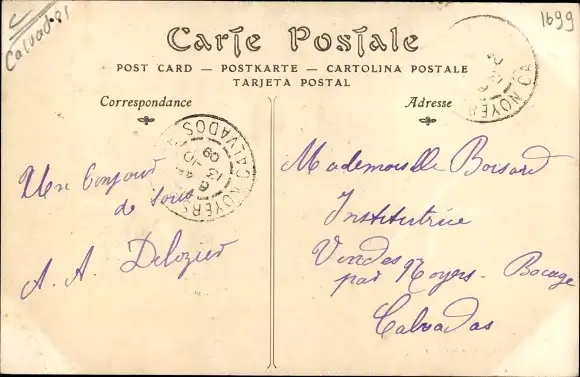 Calvados 81
1699
Carte Postale
POST CARD — POSTKARTE — CARTOLINA POSTALE
TARJETA POSTAL
Correspondance
Adresse
NOYERS CALVADOS
09
NOYERS CA
Un bonjour
de tous
A. A. Delozier
Mademoiselle Boisard
Institutrice
Vendes
par Noyers - Bocage
Calvados